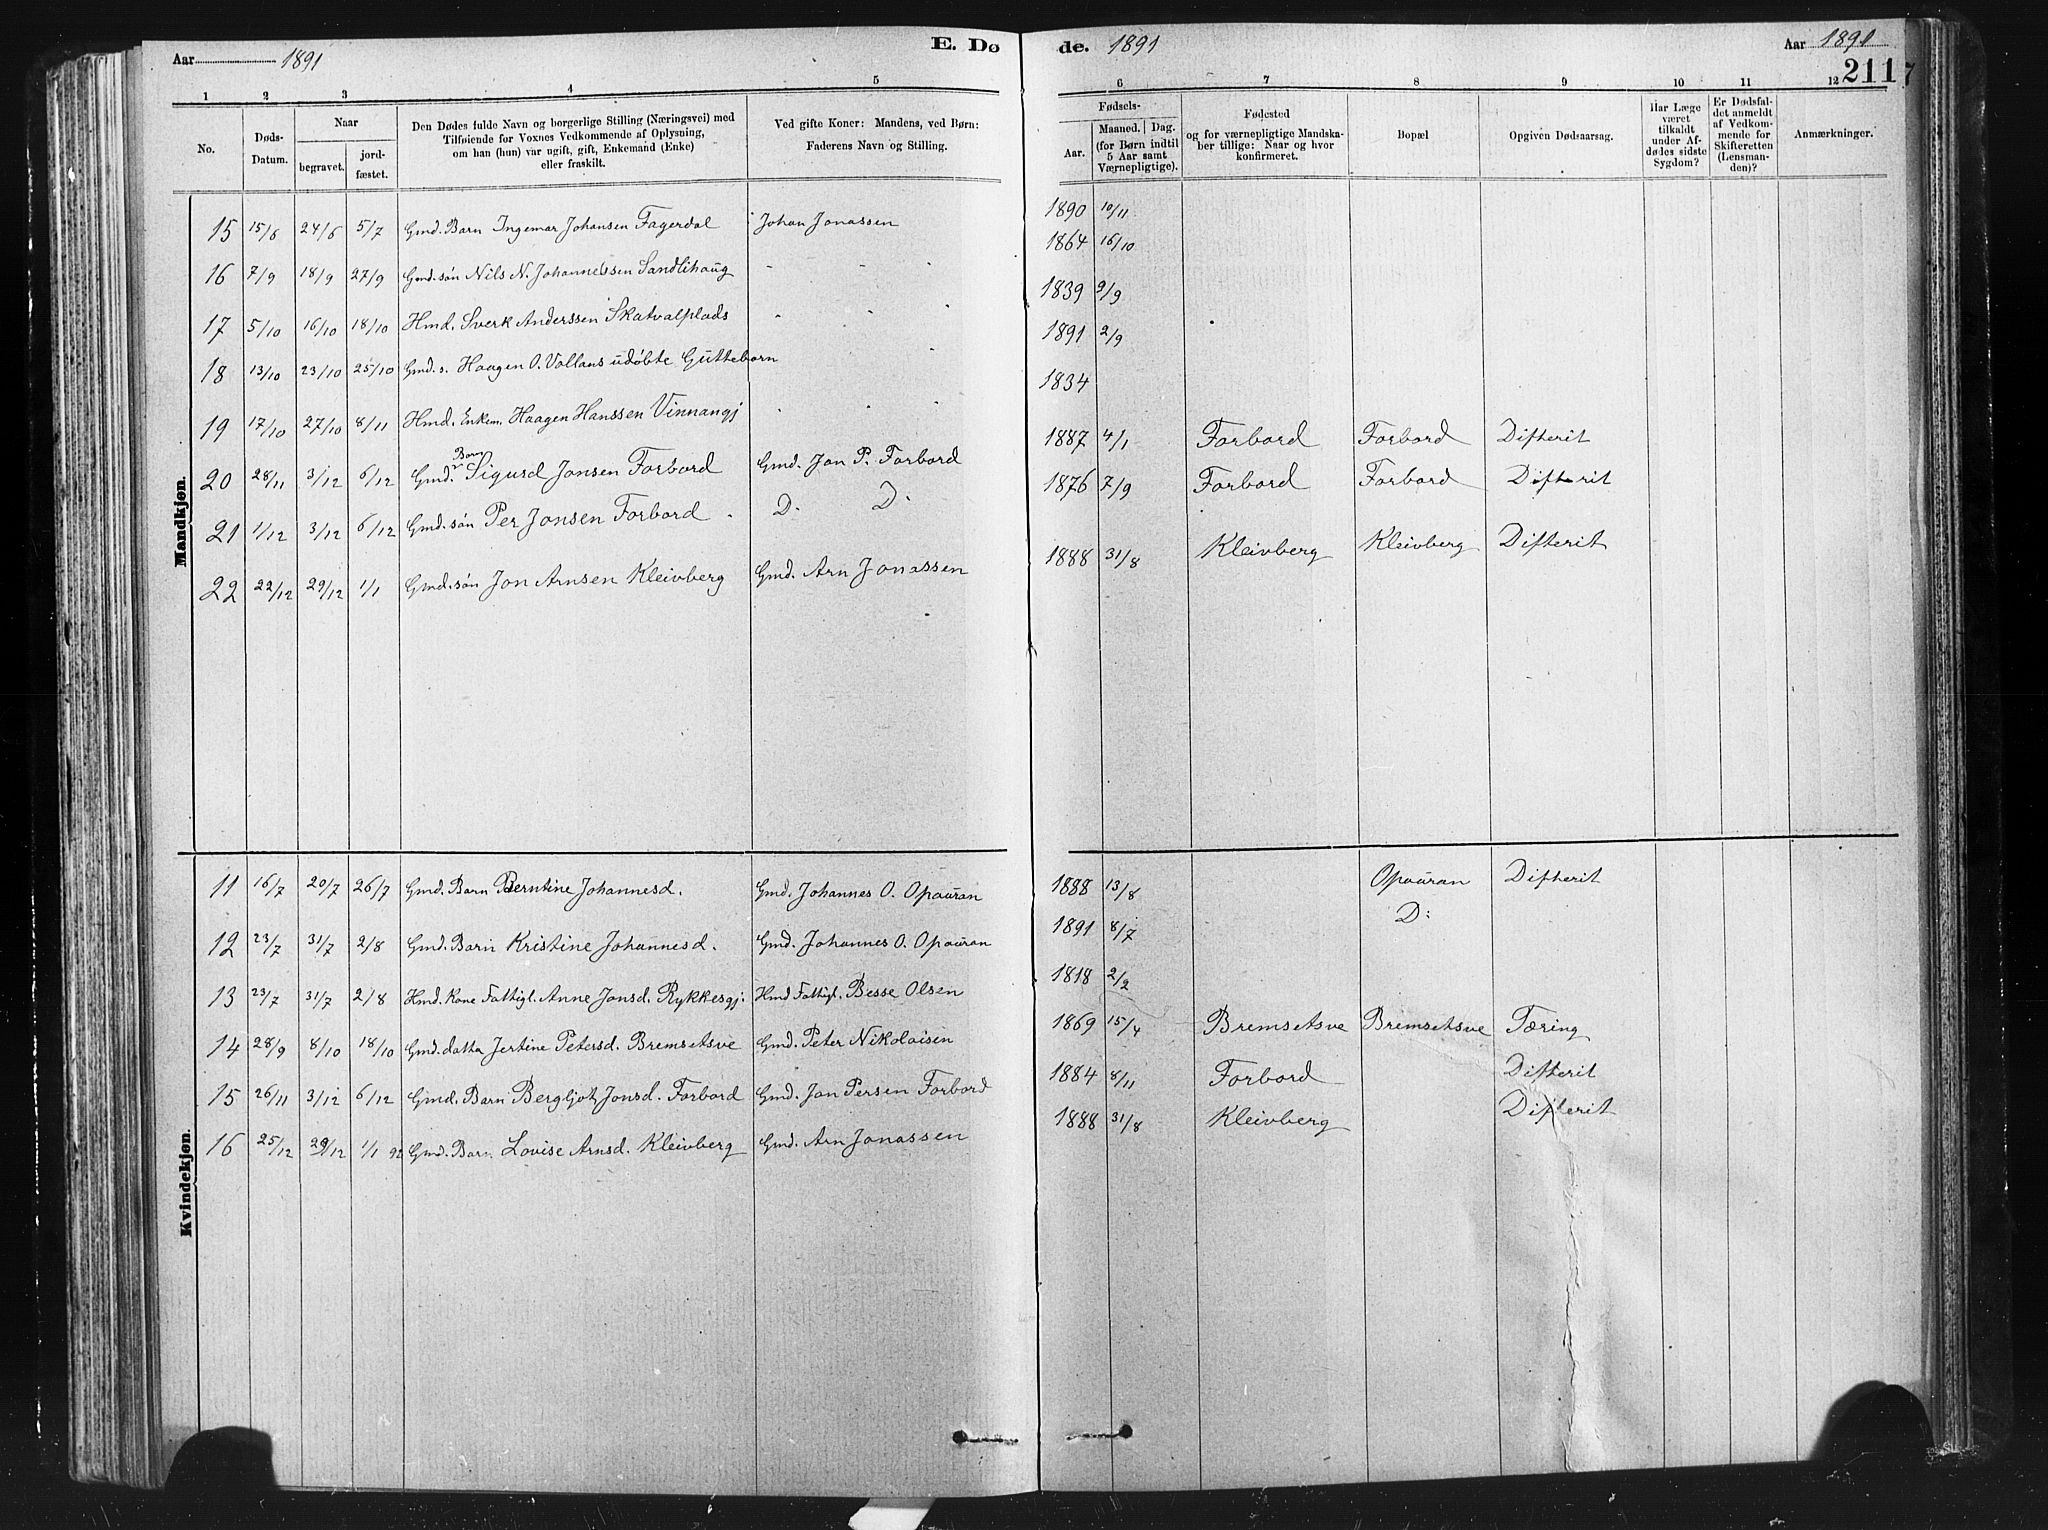 Aar 1891 E. Dø
de. 1891 Aar 1891
211
1 2 3 4 5
6 7 8 9 10 11 12
No. Døds-Datum. Naar begravet. jordfæstet. Den Dødes fulde Navn og borgerlige Stilling (Næringsvei) med Tilføiende for Voxnes Vedkommende af Oplysning, om han (hun) var ugift, gift, Enkemand (Enke) eller fraskilt. Ved gifte Koner: Mandens, ved Børn: Faderens Navn og Stilling.
Fødsels- Aar. Maaned. Dag. (for Børn indtil 5 Aar samt Værnepligtige). Fødested og for værnepligtige Mandskaber tillige: Naar og hvor konfirmeret. Bopæl. Opgiven Dødsaarsag. Har Læge været tilkaldt under Afdødes sidste Sygdom? Er Dødsfaldet anmeldt af Vedkommende for Skifteretten (Lensmanden)? Anmærkninger.
Mandkjøn.
15 15/6 24/6 5/7 Gmd. Barn Ingemar Johansen Fagerdal Johan Jonassen 1890 10/11
16 7/9 18/9 27/9 Gmd. søn Nils N. Johannessen Sandlihaug 1864 16/10
17 5/10 16/10 18/10 Hmd. Sverk Anderssen Skatvalplads 1839 9/9
18 13/10 23/10 25/10 Gmd. s. Haagen O. Vollans udøbte Guttebarn 1891 2/9
19 17/10 27/10 8/11 Hmd. Enkem. Haagen Hanssen Vinnangj 1834
20 28/11 3/12 6/12 Gmd. Barn Sigurd Jonsen Forbord Gmd. Jon P. Forbord 1887 4/1 Forbord Forbord Difterit
21 1/12 3/12 6/12 Gmd. søn Per Jonsen Forbord D. D. 1876 7/9 Forbord Forbord Difterit
22 22/12 29/12 1/1 Gmd. søn Jon Arnsen Kleivberg Gmd. Arn Jonassen 1888 31/8 Kleivberg Kleivberg Difterit
Kvindekjøn.
11 16/7 20/7 26/7 Gmd. Barn Berntine Johannesd. Gmd. Johannes O. Opauran 1888 13/8 Opauran Difterit
12 23/7 31/7 2/8 Gmd. Barn Kristine Johannesd. Gmd. Johannes O. Opauran 1891 8/7 D:
13 23/7 31/7 2/8 Hmd. Kone Fattigl. Anne Jonsd. Rykkesgj. Hmd Fattigl. Besse Olsen 1818 2/2
14 28/9 8/10 18/10 Gmd. datter Jertine Petersd. Bremsetsve Gmd. Peter Nikolaisen 1869 15/4 Bremsetsve Bremsetsve Tæring
15 26/11 3/12 6/12 Gmd. Barn Bergljot Jonsd. Forbord Gmd. Jon Persen Forbord 1884 8/11 Forbord Difterit
16 25/12 29/12 1/1 92 Gmd. Barn Lovise Arnsd. Kleivberg Gmd. Arn Jonassen 1888 31/8 Kleivberg Difterit